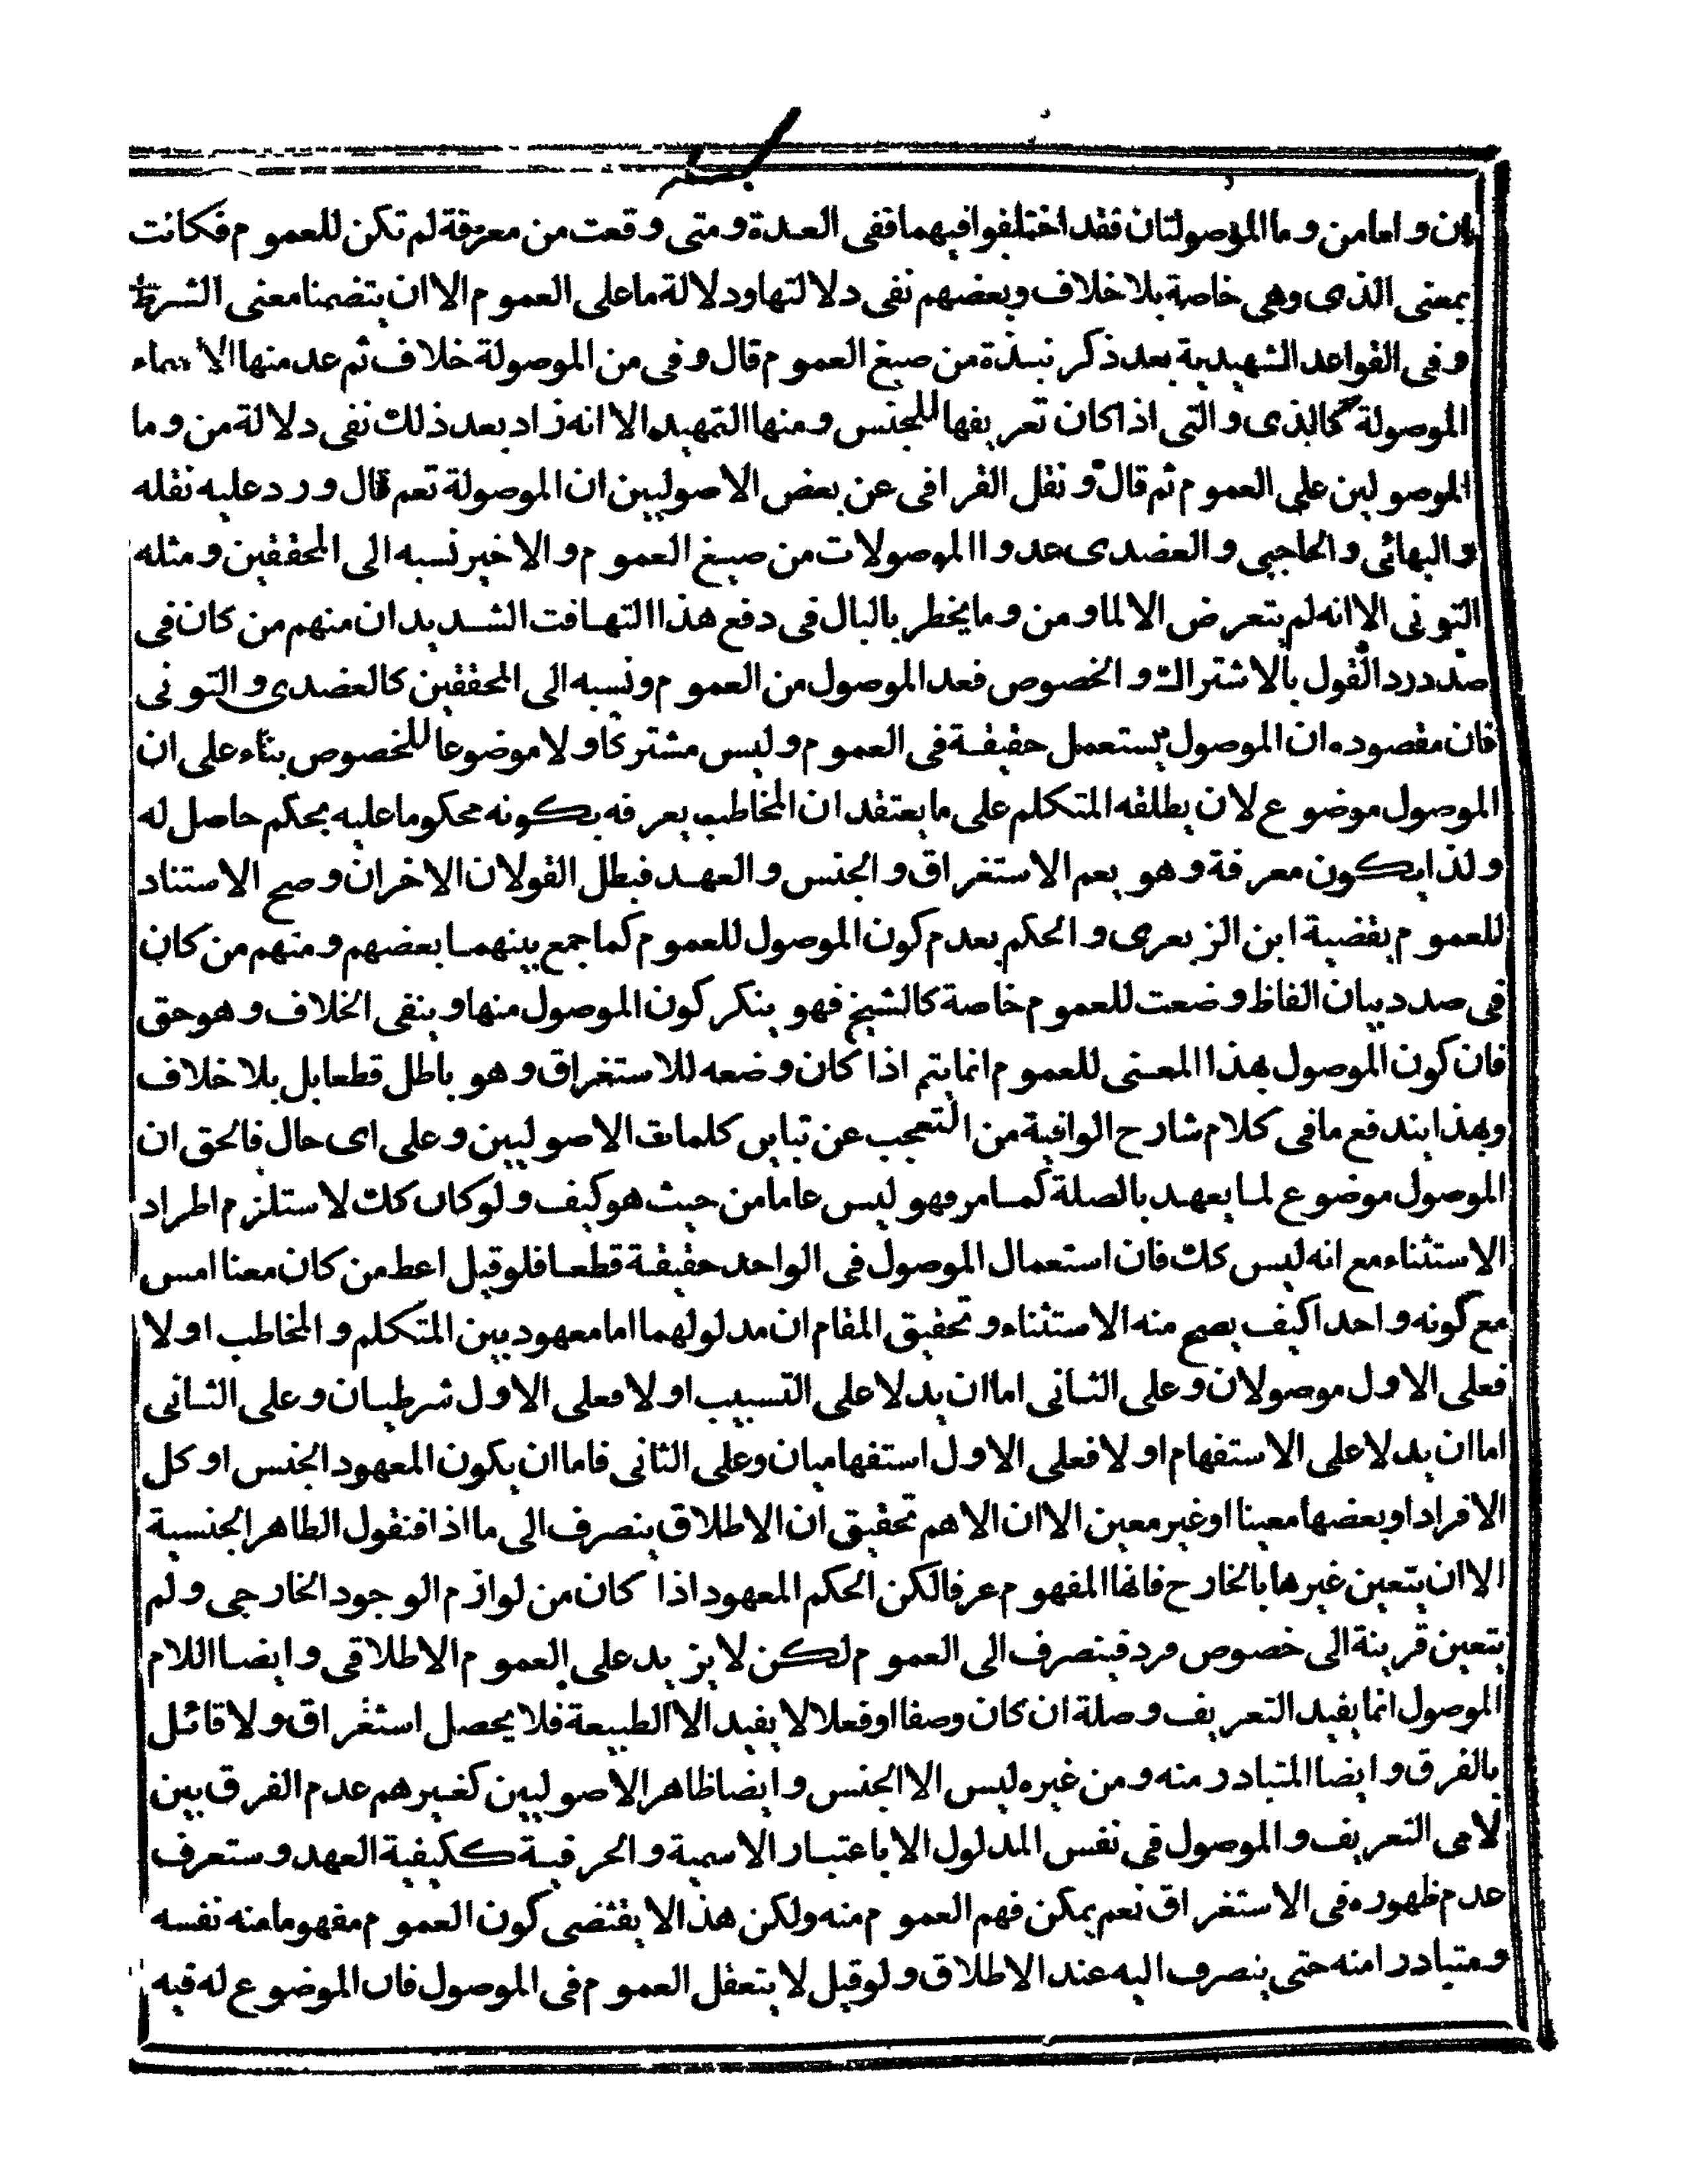 ان واما من وما الموصولتان فقد اختلفوا فيهما ففى العدة ومتى وقعت من معرفة لم تكن للعموم فكانت
بمعنى الذى وهى خاصة بلا خلاف وبعضهم نفى دلالتها ودلالة ما على العموم الا ان يتضمنا معنى الشرط
وفى القواعد الشهيدية بعد ذكر نبذة من صيغ العموم قال وفى من الموصولة خلاف ثم عد منها الاسماء
الموصولة كالذى والتى اذا كان تعريفها للجنس ومنها التمهيد الا انه زاد بعد ذلك نفى دلالة من وما
الموصولين على العموم ثم قال ونقل القرافى عن بعض الاصوليين ان الموصولة تعم قال ورد عليه نقله
والبهائى والحاجبى والعضدى عدوا الموصولات من صيغ العموم والاخير نسبه الى المحققين ومثله
التونى الا انه لم يتعرض الا لما ومن وما يخطر بالبال فى دفع هذا التهافت الشديد ان منهم من كان فى
صدد رد القول بالاشتراك والخصوص فعد الموصول من العموم ونسبه الى المحققين كالعضدى والتونى
فان مقصوده ان الموصول يستعمل حقيقة فى العموم وليس مشتركا ولا موضوعا للخصوص بناء على ان
الموصول موضوع لان يطلقه المتكلم على ما يعتقد ان المخاطب يعرفه بكونه محكوما عليه بحكم حاصل له
ولذا يكون معرفة وهو يعم الاستغراق والجنس والعهد فبطل القولان الاخران وصح الاستناد
للعموم بقضية ابن الزبعرى والحكم بعدم كون الموصول للعموم كما جمع بينهما بعضهم ومنهم من كان
فى صدد بيان الفاظ وضعت للعموم خاصة كالشيخ فهو ينكر كون الموصول منها وينفى الخلاف وهو حق
فان كون الموصول بهذا المعنى للعموم انما يتم اذا كان وضعه للاستغراق وهو باطل قطعا بل بلا خلاف
وبهذا يندفع ما فى كلام شارح الوافية من التعجب عن تباين كلمات الاصوليين وعلى اى حال فالحق ان
الموصول موضوع لما يعهد بالصلة كما مر فهو ليس عاما من حيث هو كيف ولو كان كك لاستلزم اطراد
الاستثناء مع انه ليس كك فان استعمال الموصول فى الواحد حقيقة قطعا فلو قيل اعط من كان معنا امس
مع كونه واحدا كيف يصح منه الاستثناء وتحقيق المقام ان مدلولهما اما معهود بين المتكلم والمخاطب او لا
فعلى الاول موصولان وعلى الثانى اما ان يدلا على التسبيب او لا فعلى الاول شرطيان وعلى الثانى
اما ان يدلا على الاستفهام او لا فعلى الاول استفهاميان وعلى الثانى فاما ان يكون المعهود الجنس او كل
الافراد او بعضها معينا او غير معين الا ان الاهم تحقيق ان الاطلاق ينصرف الى ما اذا فنقول الظاهر الجنسية
الا ان يتعين غيرها بالخارج فانها المفهوم عرفا لكن الحكم المعهود اذا كان من لوازم الوجود الخارجى ولم
يتعين قرينة الى خصوص فرد فينصرف الى العموم لكن لا يزيد على العموم الاطلاقى وايضا اللام
الموصول انما يفيد التعريف وصلة ان كان وصفا او فعلا لا يفيد الا الطبيعة فلا يحصل استغراق ولا قائل
بالفرق وايضا المتبادر منه ومن غيره ليس الا الجنس وايضا ظاهر الاصوليين كغيرهم عدم الفرق بين
لامى التعريف والموصول فى نفس المدلول الا باعتبار الاسمية والحرفية ككيفية العهد وستعرف
عدم ظهوره فى الاستغراق نعم يمكن فهم العموم منه ولكن هذا لا يقتضى كون العموم مفهوما منه نفسه
ومتبادرا منه حتى ينصرف اليه عند الاطلاق ولو قيل لا يتعقل العموم فى الموصول فان الموضوع له فيه